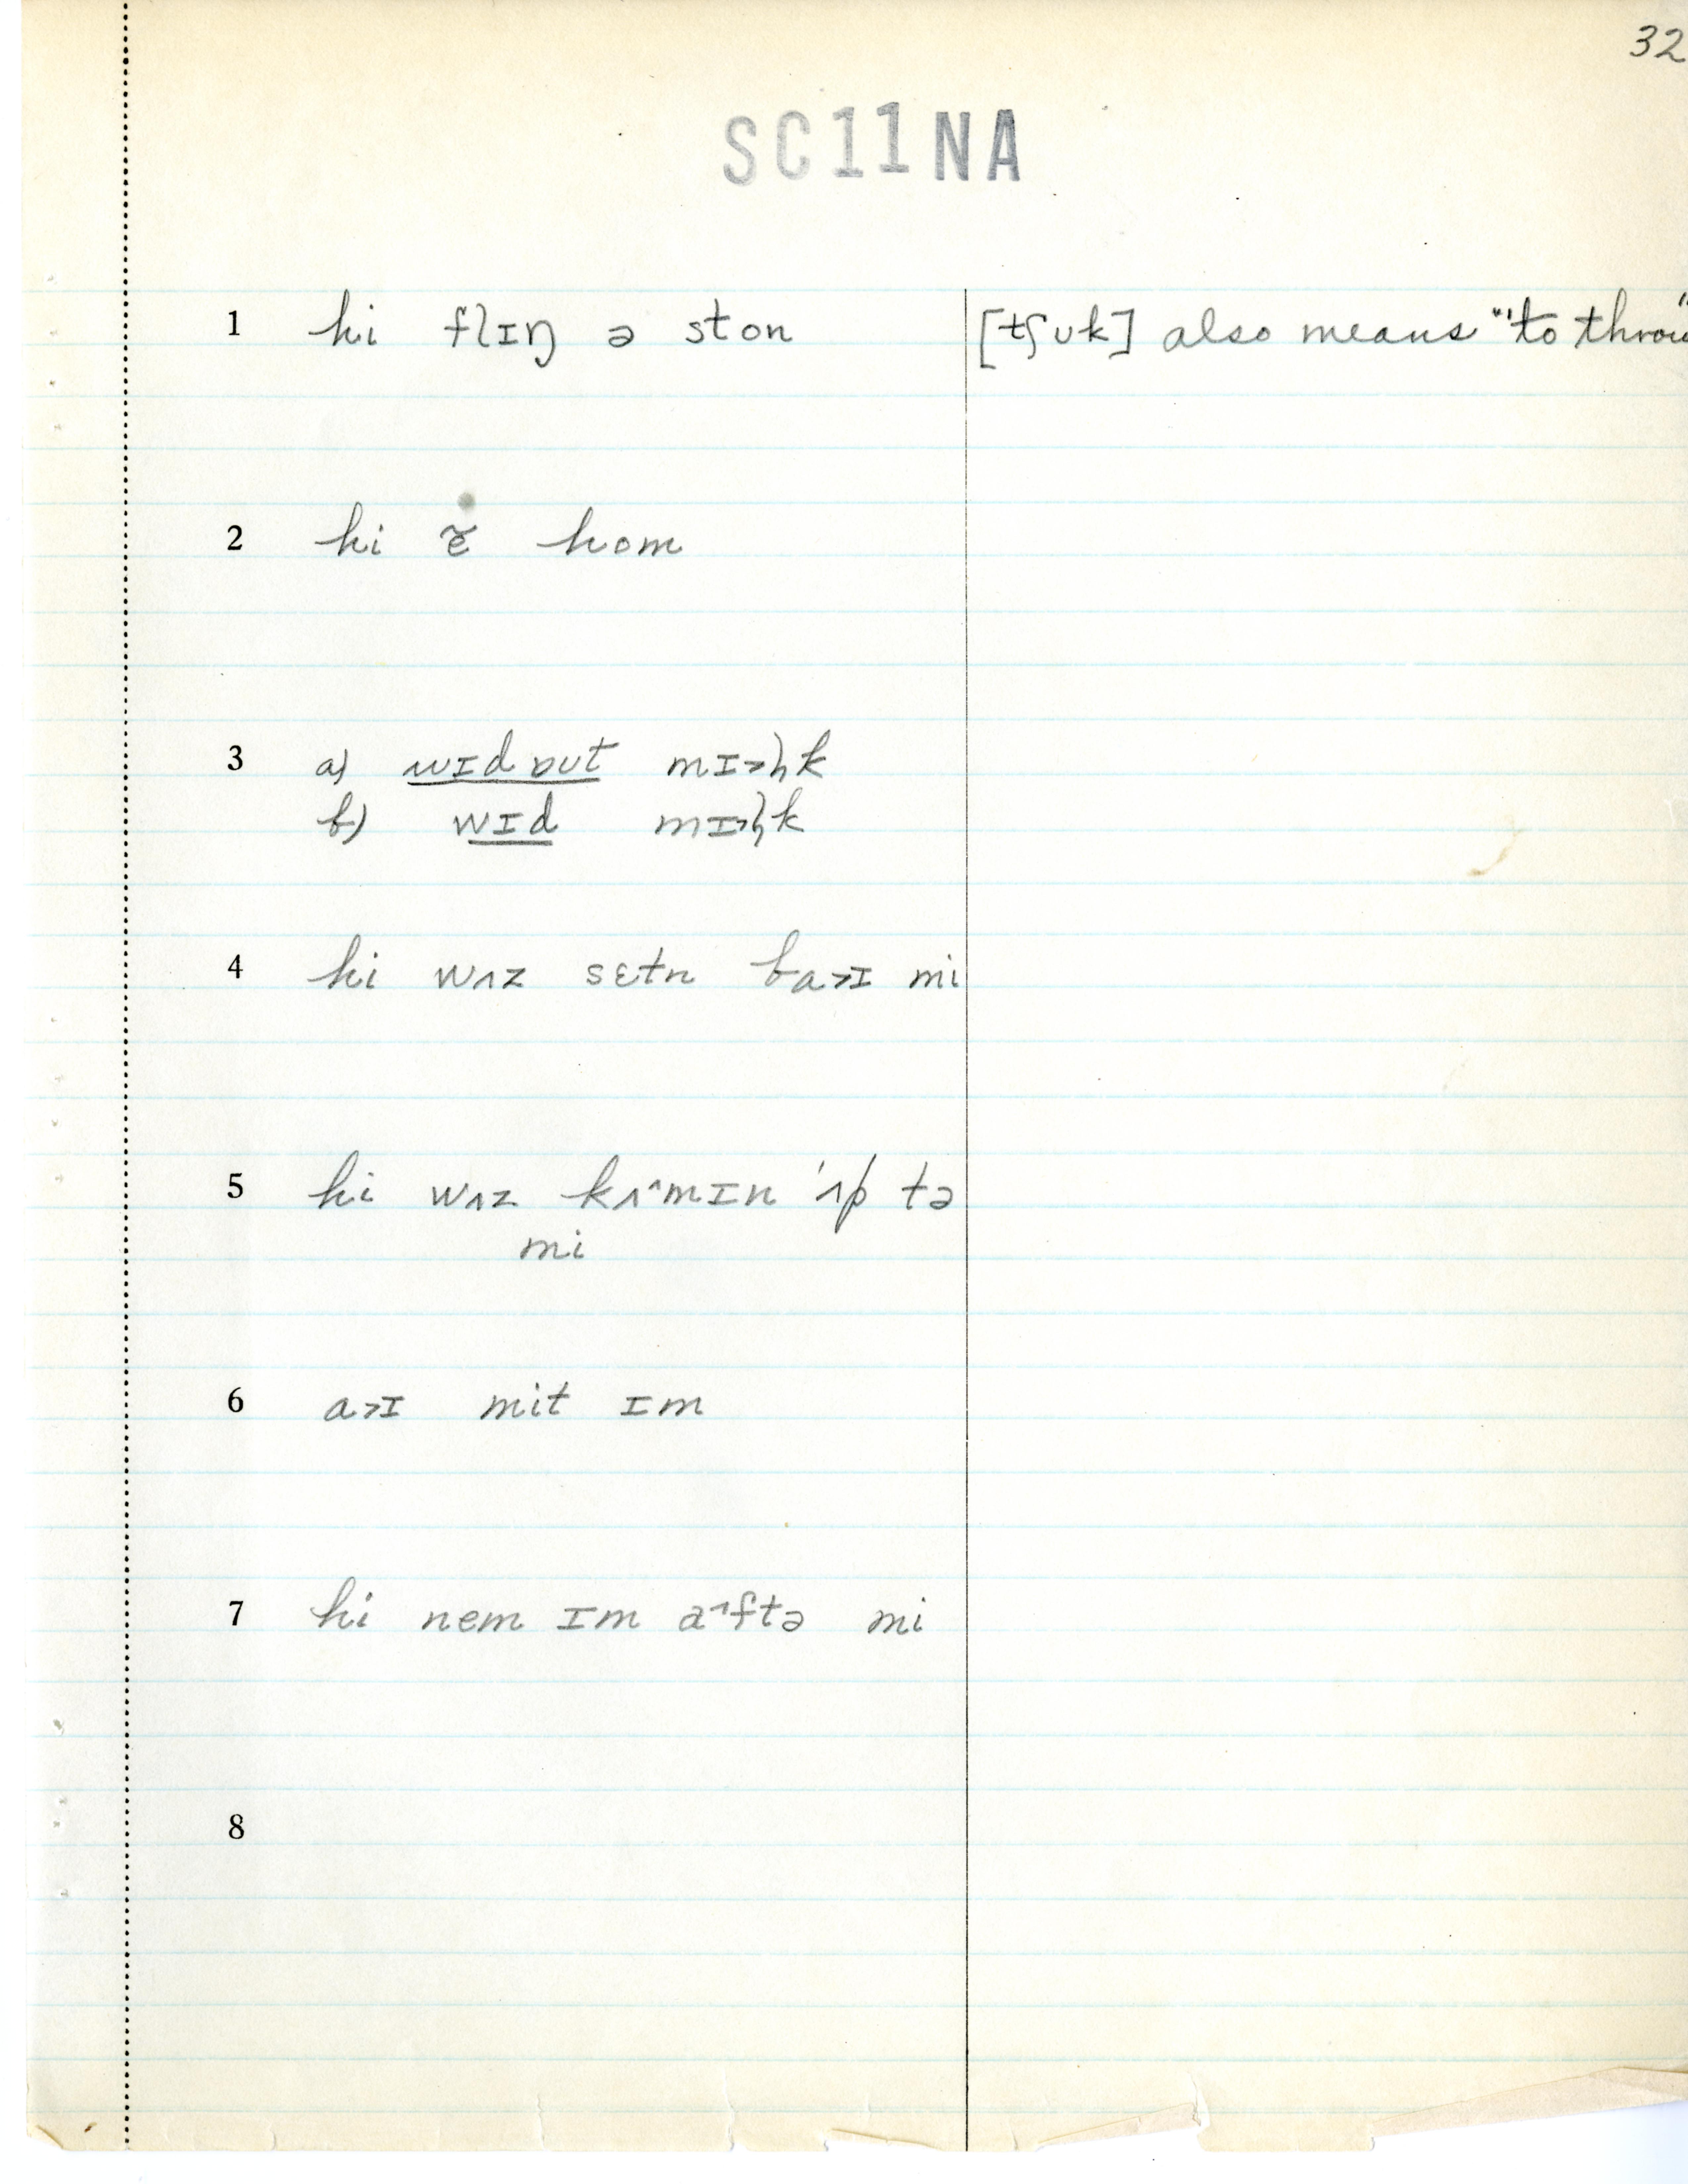 32
SC11NA
1 hi flɪŋ ə ston [tʃʊk] also means "to throw"
2 hi ẽ hom
3 a) wɪdɒut mɪ>ɫk
b) wɪd mɪ>ɫk
4 hi wʌz sɛtn ba>ɪ mi
5 hi wʌz kʌ^mɪn 'ʌp tə
mi
6 a>ɪ mit ɪm
7 hi nem ɪm a^ftə mi
8